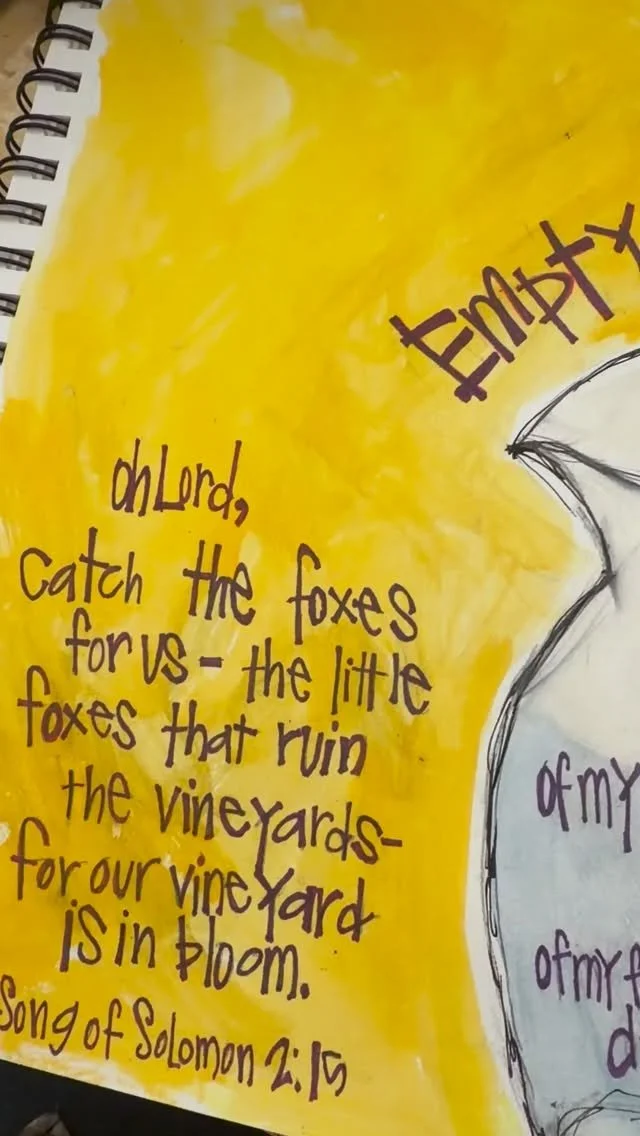 Empty
oh Lord,
catch the foxes
for us - the little
foxes that ruin
the vineyards-
for our vineyard
is in bloom.
Song of Solomon 2:15
of my
of my